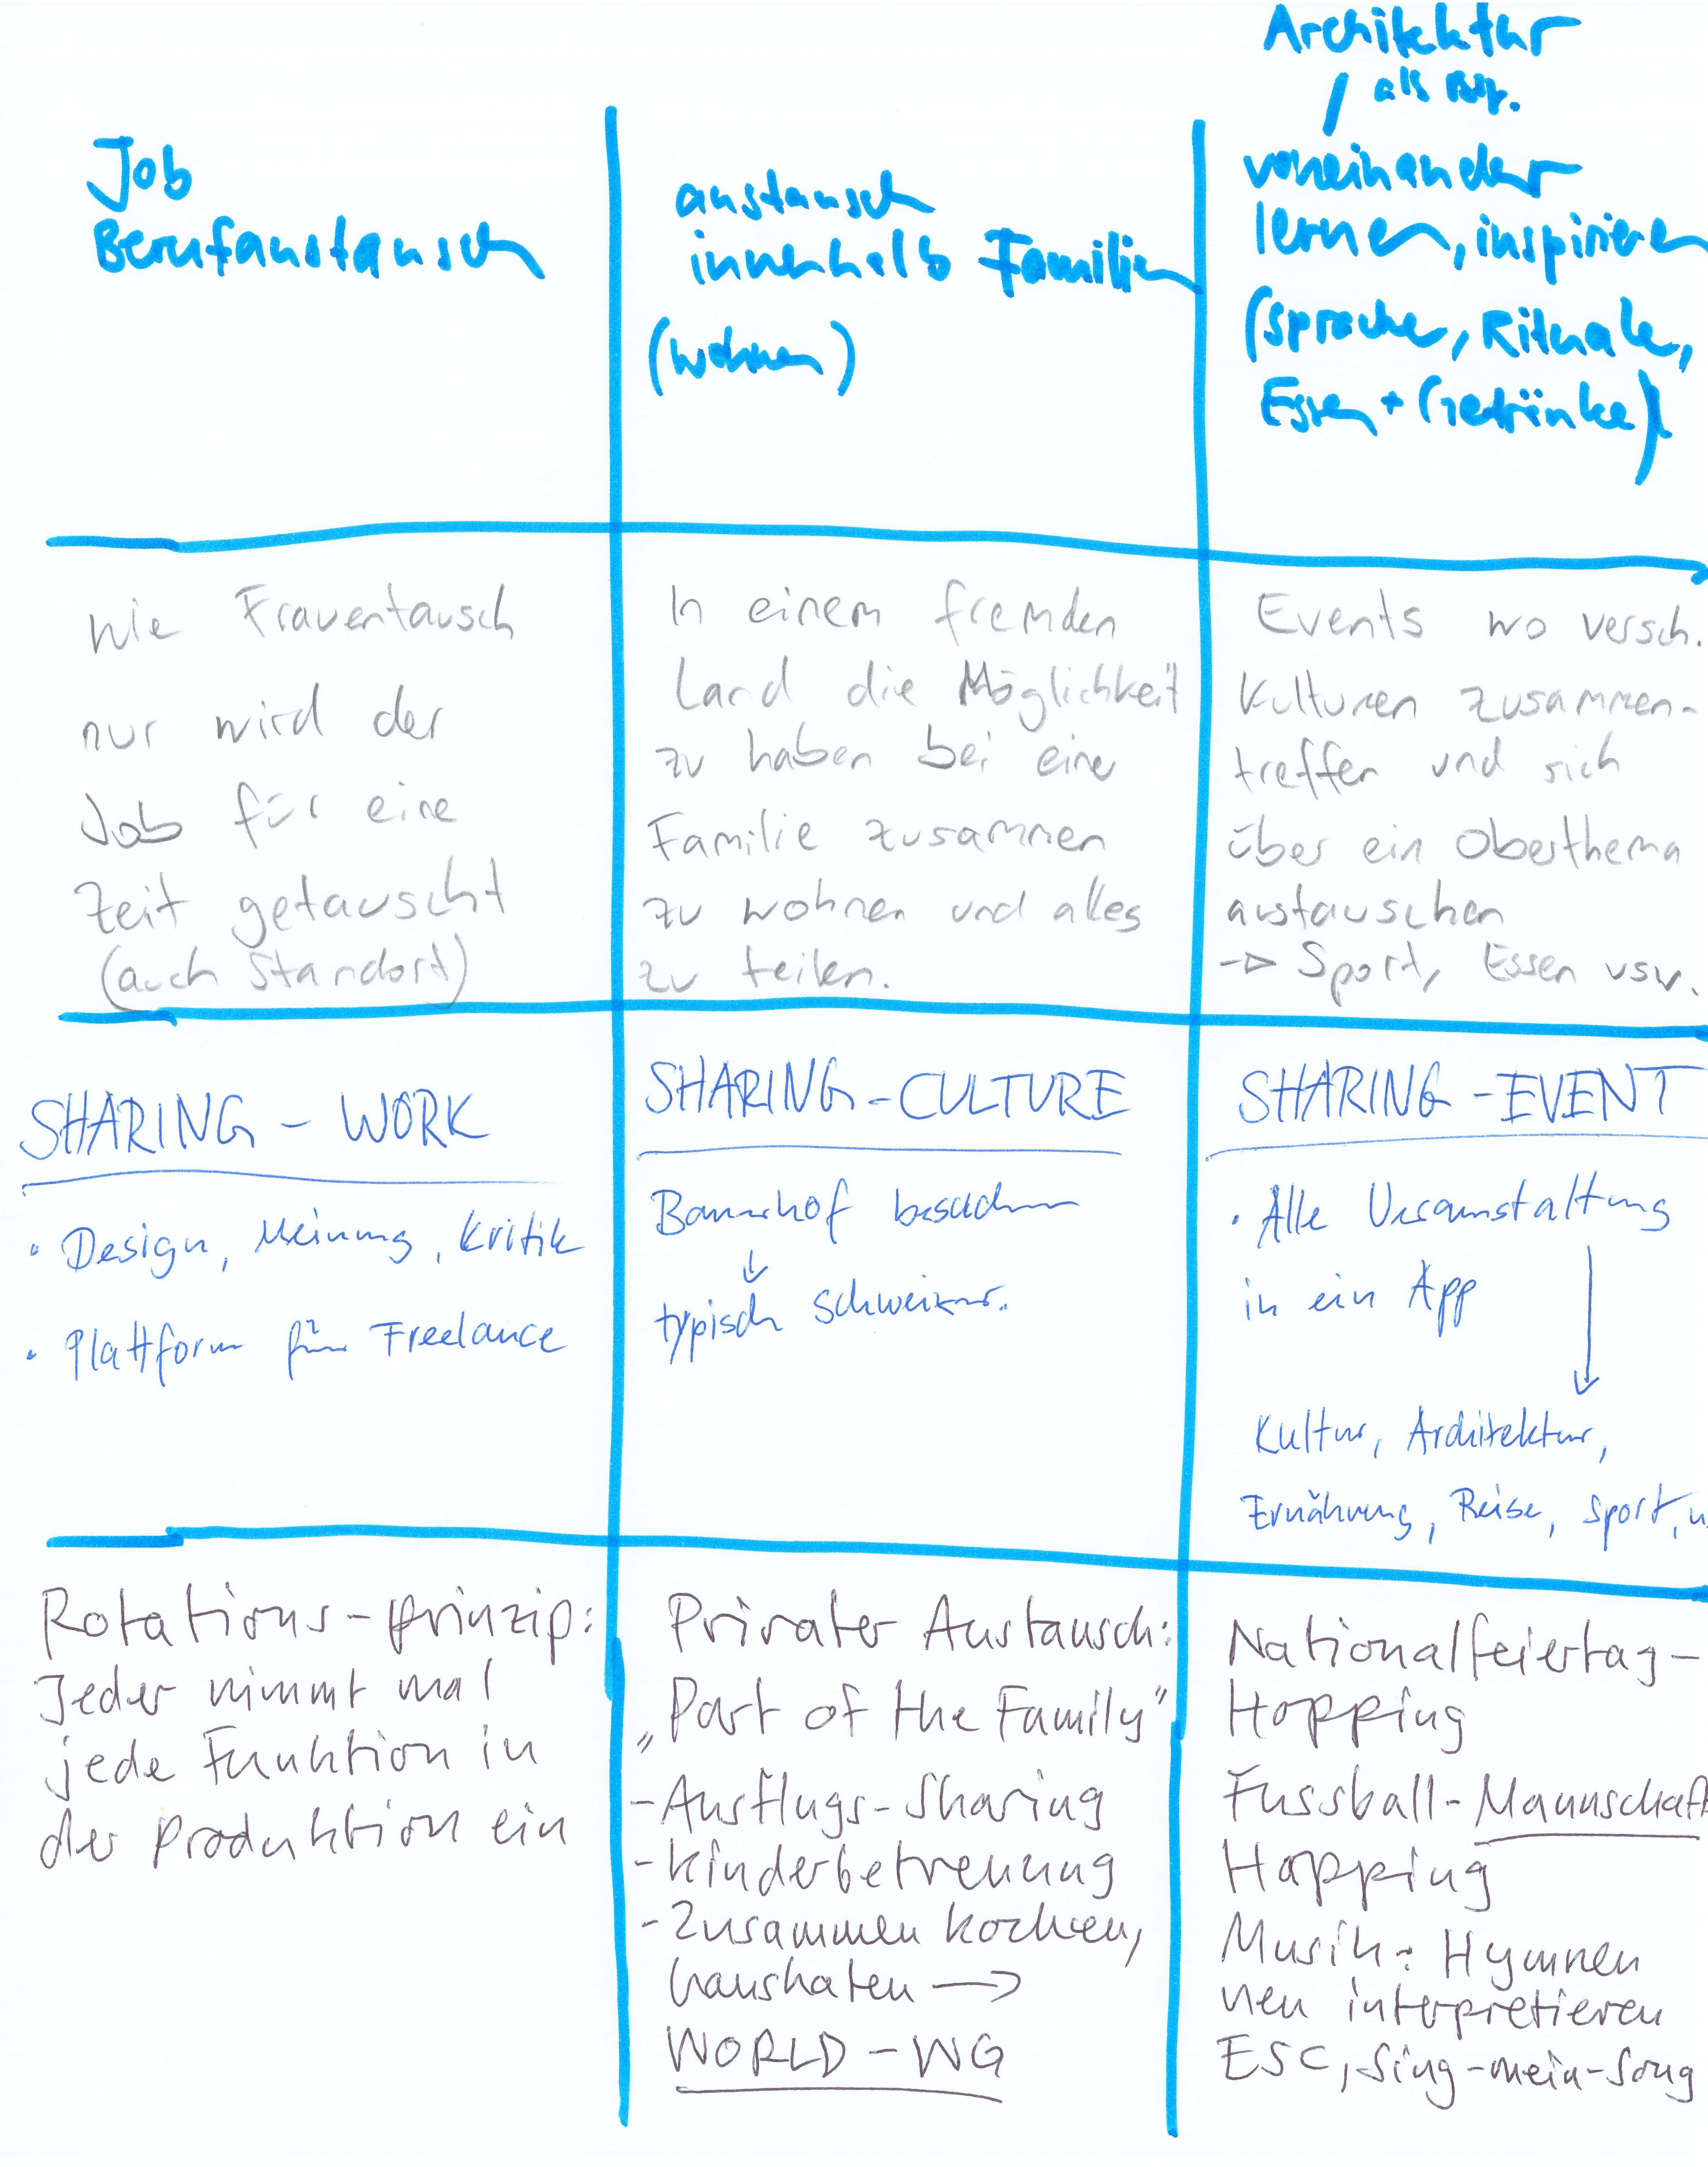 Job
Berufaustausch
austausch
innerhalb Familien
(wohnen)
Architektur
/ als Bsp.
voneinander
lernen, inspirieren
(Sprache, Rituale,
Essen + Getränke)
wie Frauentausch
nur wird der
Job für eine
Zeit getauscht
(auch Standort)
In einem fremden
Land die Möglichkeit
zu haben bei eine
Familie zusammen
zu wohnen und alles
zu teilen.
Events wo versch.
Kulturen zusammen-
treffen und sich
über ein Oberthema
austauschen
→ Sport, Essen usw.
SHARING - WORK
• Design, Meinung, Kritik
• Plattform für Freelance
SHARING - CULTURE
Bauernhof besuchen
↓
typisch Schweizer.
SHARING - EVENT
• Alle Veranstaltung
in ein App
↓
Kultur, Architektur,
Ernährung, Reise, Sport, u
Rotations-prinzip:
Jeder nimmt mal
jede Funktion in
der Produktion ein
Privater Austausch:
„Part of the Family"
- Ausflugs-Sharing
- Kinderbetreuung
- Zusammen kochen,
haushalten →
WORLD - WG
Nationalfeiertag-
Hopping
Fussball-Mannschaft
Hopping
Musik: Hymnen
neu interpretieren
ESC, Sing-mein-Song